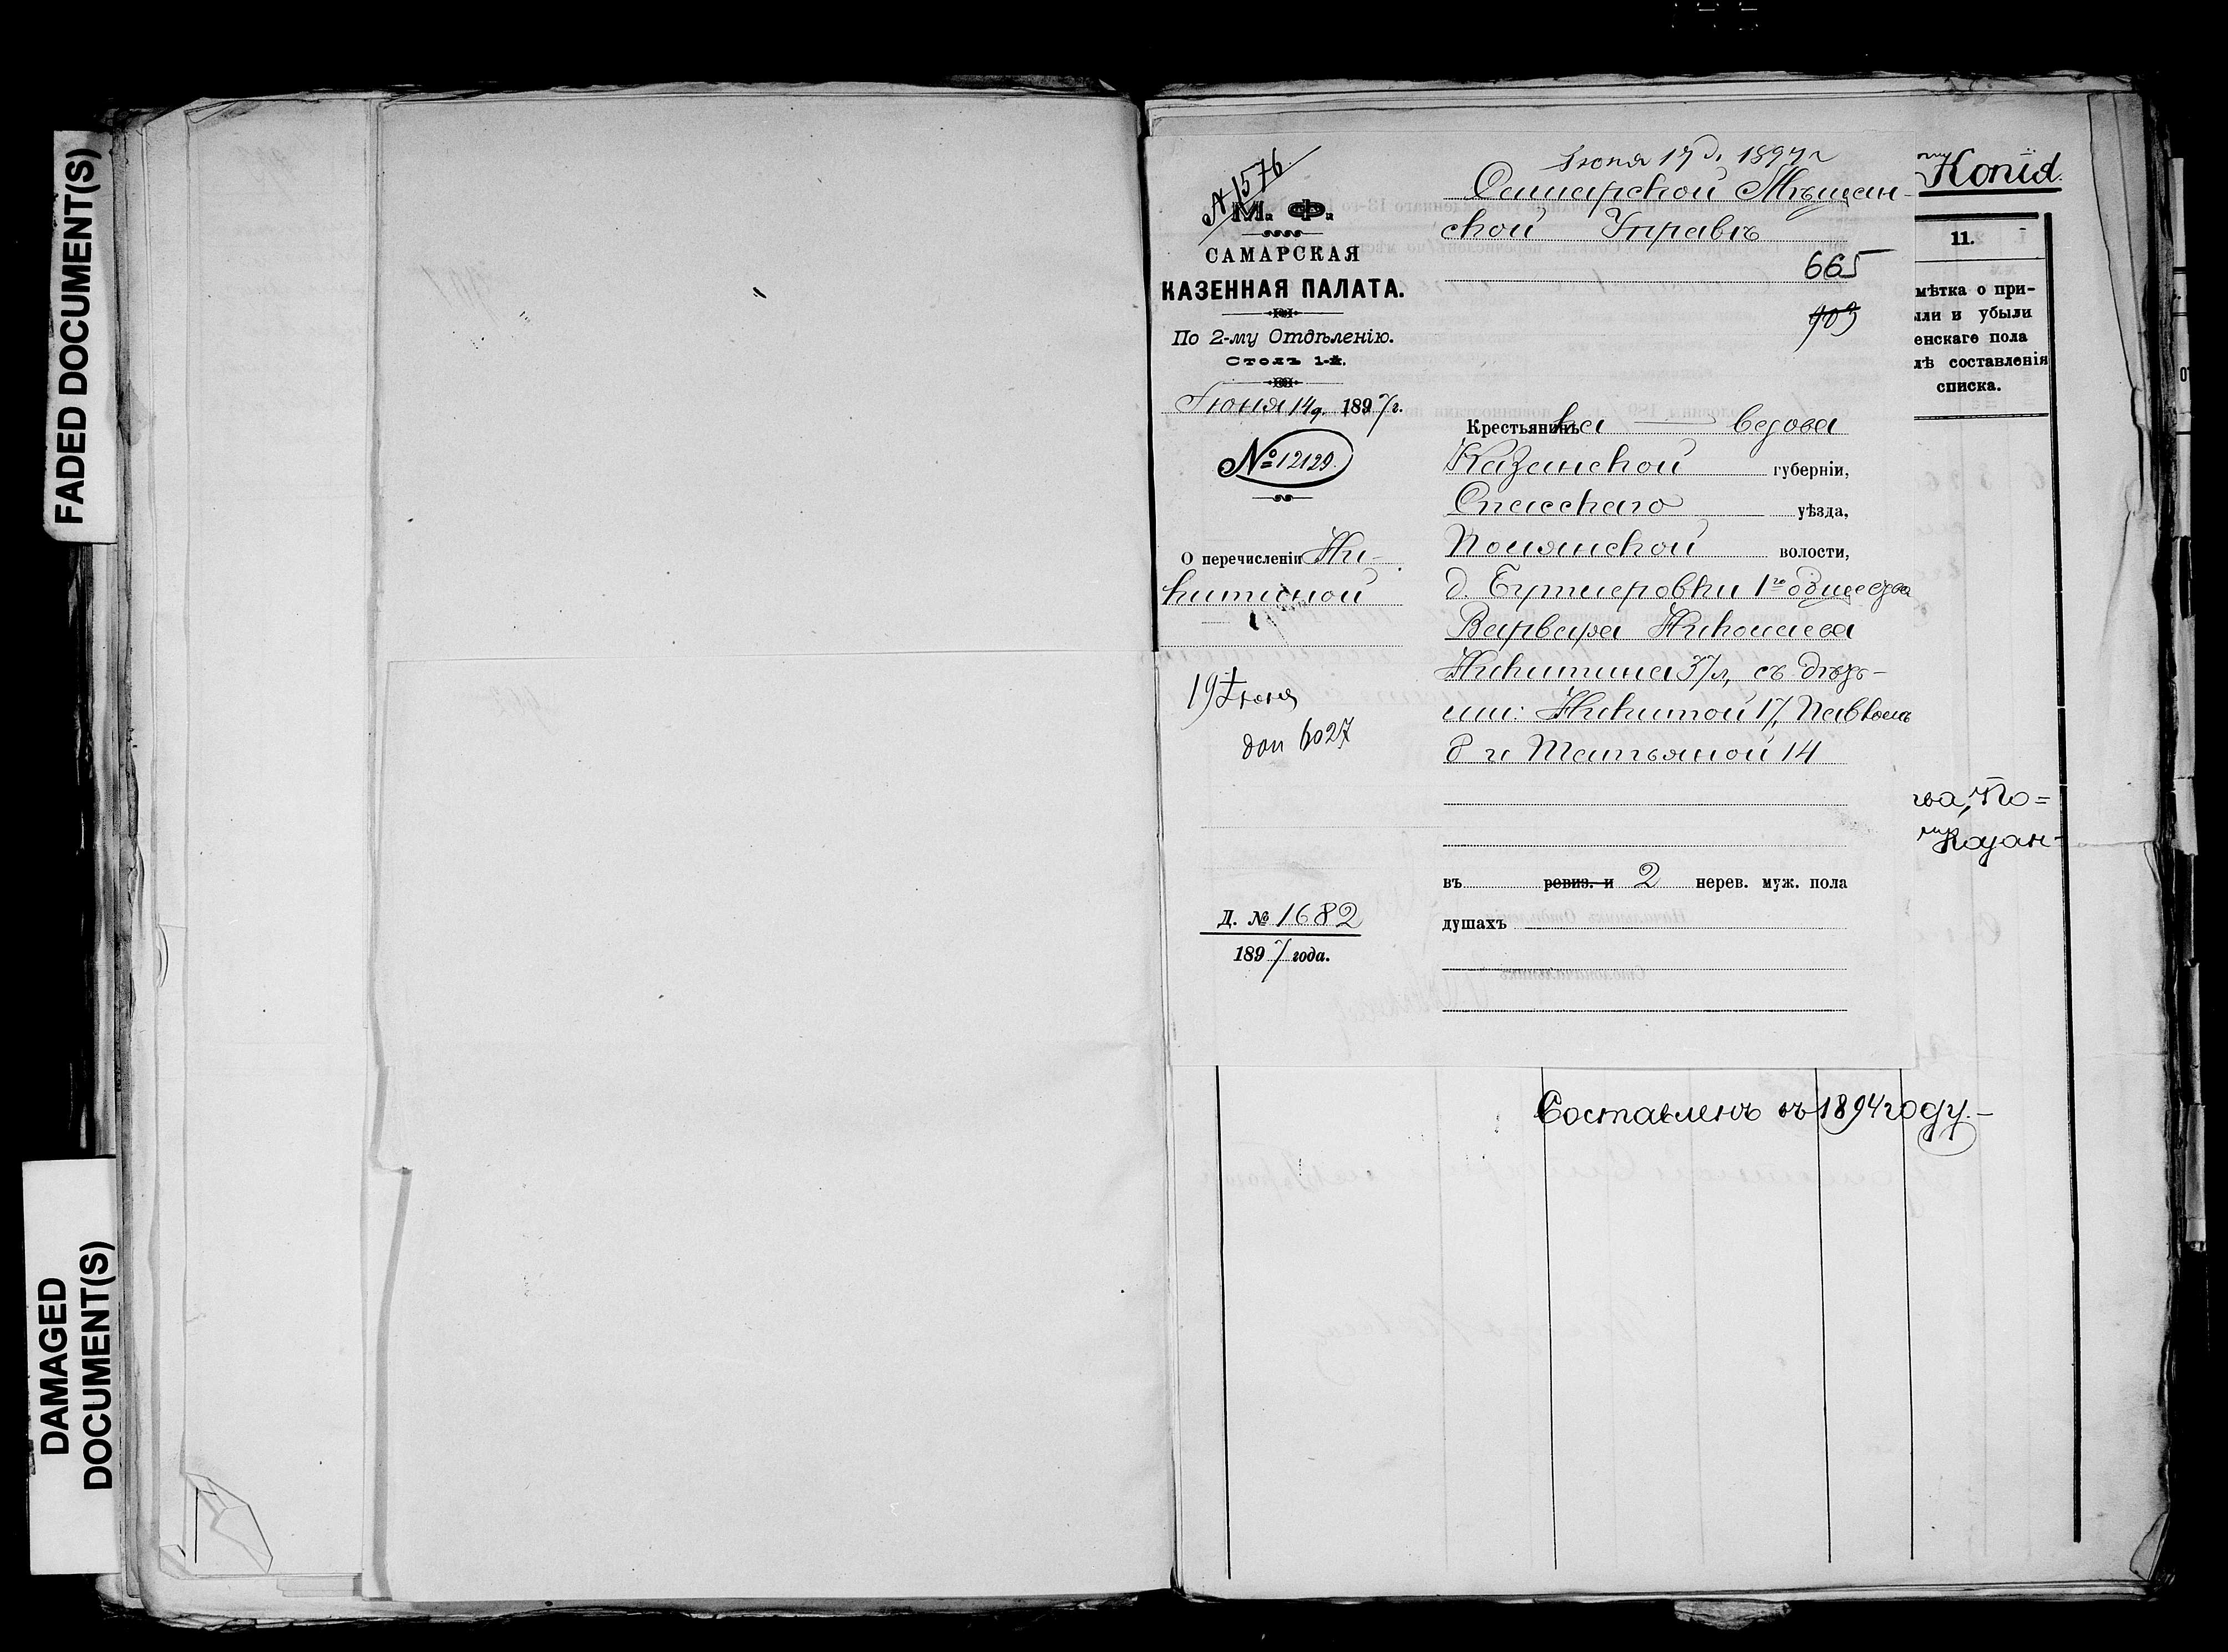 FADED DOCUMENT(S)
DAMAGED
DOCUMENT(S)
№ 1576
М. Ф.
САМАРСКАЯ
КАЗЕННАЯ ПАЛАТА.
По 2-му Отдѣленію.
Столъ 1-й.
Іюня 14 д. 1897 г.
№ 12129.
О перечисленіи Ни-
китиной
19 Іюня
дол 6027
Д. № 1682
1897 года.
Іюня 17 д. 1897 г
Самарской Мѣщан-
ской Управѣ
665
703
Крестьянинъ ка — вдова
Казанской губерніи,
Спасскаго уѣзда,
Полянской волости,
д. Бутлеровки 1го общества
Варвара Николаева
Никитина 37 л, съ дѣть-
ми: Никитой 17, Павломъ
8 и Татьяной 14
въ ревиз. и 2 нерев. муж. пола
душахъ
Копія.
11.
мѣтка о при-
ыли и убыли
енскаго пола
лѣ составленія
списка.
ва, По=
Казан-
Составленъ въ 1894 году.-